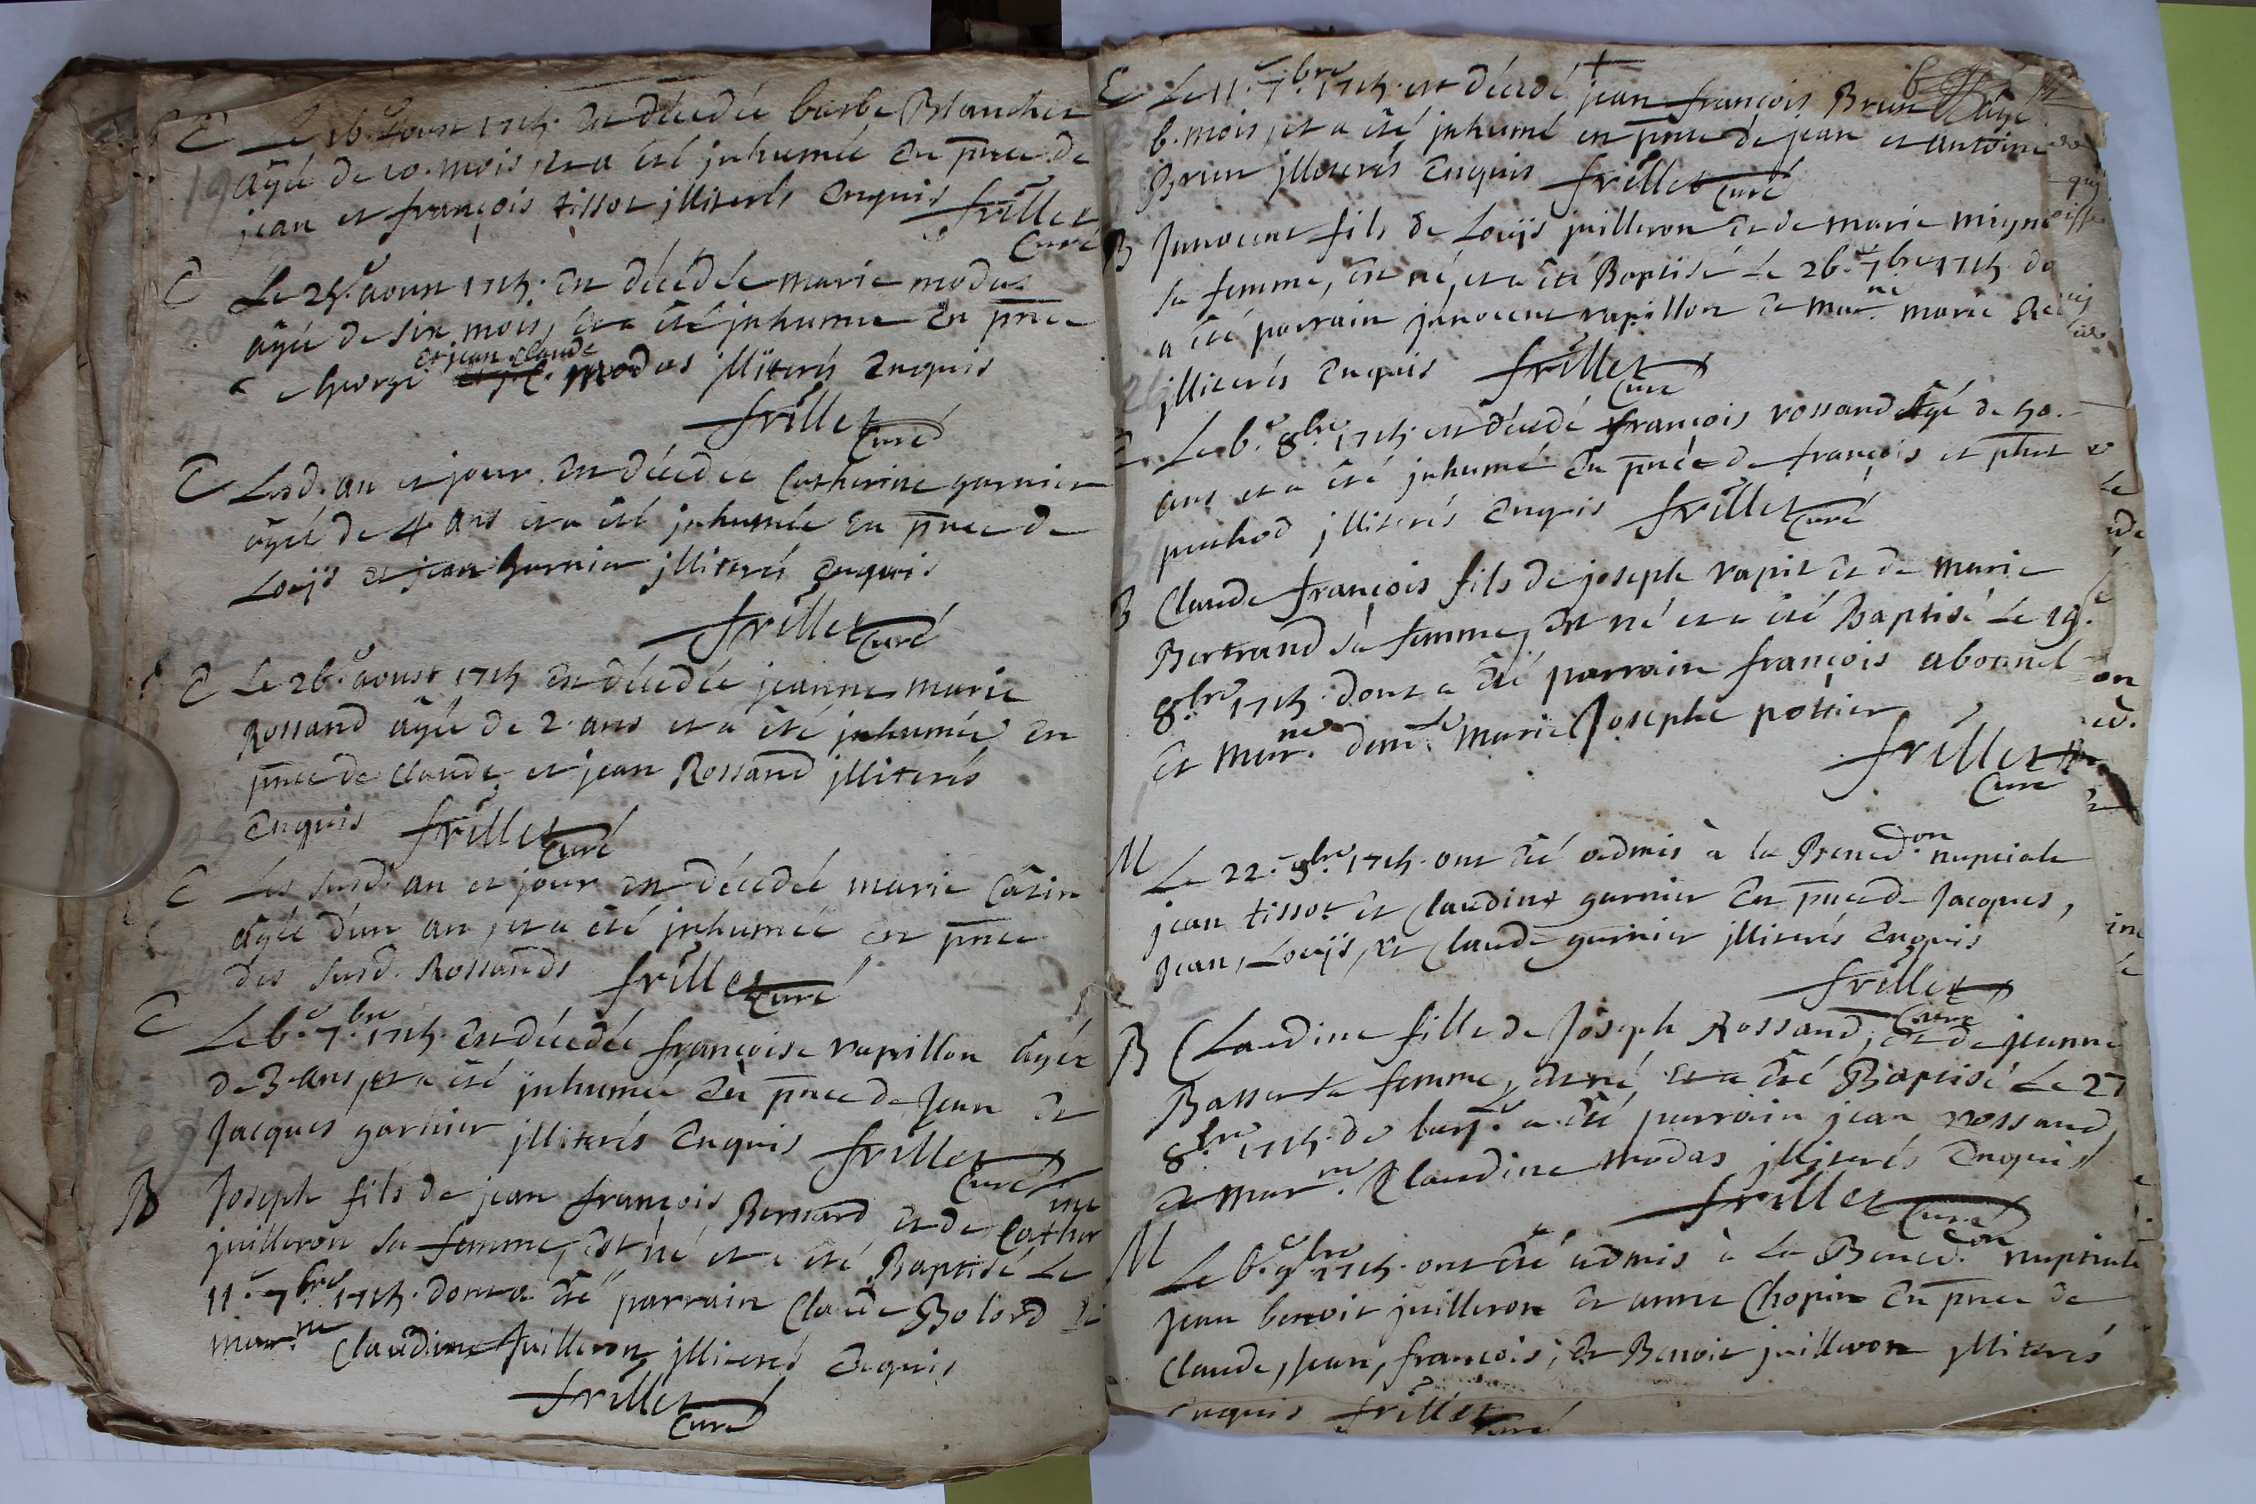 E Le 16.e aoust 1715. est décédée barbe Blanchet
âgée de 10. mois, et a été inhumée en pnce de
jean et françois tissot jlliterés enquis frillet
Curé
E Le 25.e aoust 1715. est décédée marie modas
âgée de six mois, et a été jnhumée en pnce
et jean claude
de George modas jlliterés enquis
frillet
Curé
E Lesd. an et jour est décédée Catherine garnier
âgée de 4 ans et a été jnhumée en pnce de
Louÿs et jean Garnier jlliterés enquis
frillet
Curé
E Le 26.e aoust 1715 est décédée jeanne marie
Rossand âgée de 2. ans et a été jnhumée en
pnce de claude et jean Rossand jlliterés
enquis frillet
Curé
E Les susd. an et jour est décédée marie Catin
âgée d'un an, et a été jnhumée en pnce
des susd. Rossands frillet
Curé
E Le 6.e 7.bre 1715. est décédée françoise vapillon âgée
de 3. ans, et a été jnhumée en pnce de Jean et
Jacques garnier jlliterés enquis frillet
Curé
B Joseph fils de jean françois Bernard et de Cather.ine
juilleron sa femme, est né et a été Baptisé Le
11.e 7.bre 1715. dont a été parrain Claude Bolord et
mar.ne Claudine Juilleron jlliterés enquis
frillet
Curé
E Le 11.e 7.bre 1715. est décédé jean françois Brun âgé
6. mois, et a été jnhumé en pnce de jean et antoine
Brun jlliterés enquis frillet
Curé
B Jnnocent fils de Louÿs juilleron et de marie
sa femme, est né, et a été Baptisé Le 26.e 7.bre 1715. do
a été parrain jnnocent vapillon et mar.ne marie
jlliterés enquis frillet
Curé
E Le 6.e 8.bre 1715. est décédé françois rossand âgé de 50.
ans et a été jnhumé en pnce de françois et phet
puthod jlliterés enquis frillet
Curé
B Claude françois fils de joseph vapit et de marie
Bertrand sa femme, est né et a été Baptisé Le 19.
8.bre 1715. dont a été parrain françois abonnel
et mar.ne dem.le Marie Josephe pottier
frillet
Curé
M Le 22.e 8.bre 1715. ont été admis à la Bened.on nuptiale
jean tissot et Claudine garnier en pnce de Jacques,
Jean, Louÿs, et Claude garnier jlliterés enquis
frillet
Curé
B Claudine fille de Joseph Rossand, et de jeanne
Basset sa femme, est né et a été Baptisé Le 27
8.bre 1715. de laq.le a été parrain jean rossand
et mar.ne Claudine modas jlliterés enquis
frillet
Curé
M Le 6.e 9.bre 1715. ont été admis à La Bened.on nuptiale
jean benoit juilleron et anne Chopin en pnce de
Claude, Jean, françois, et Benoit juilleron jlliterés
enquis frillet
Curé